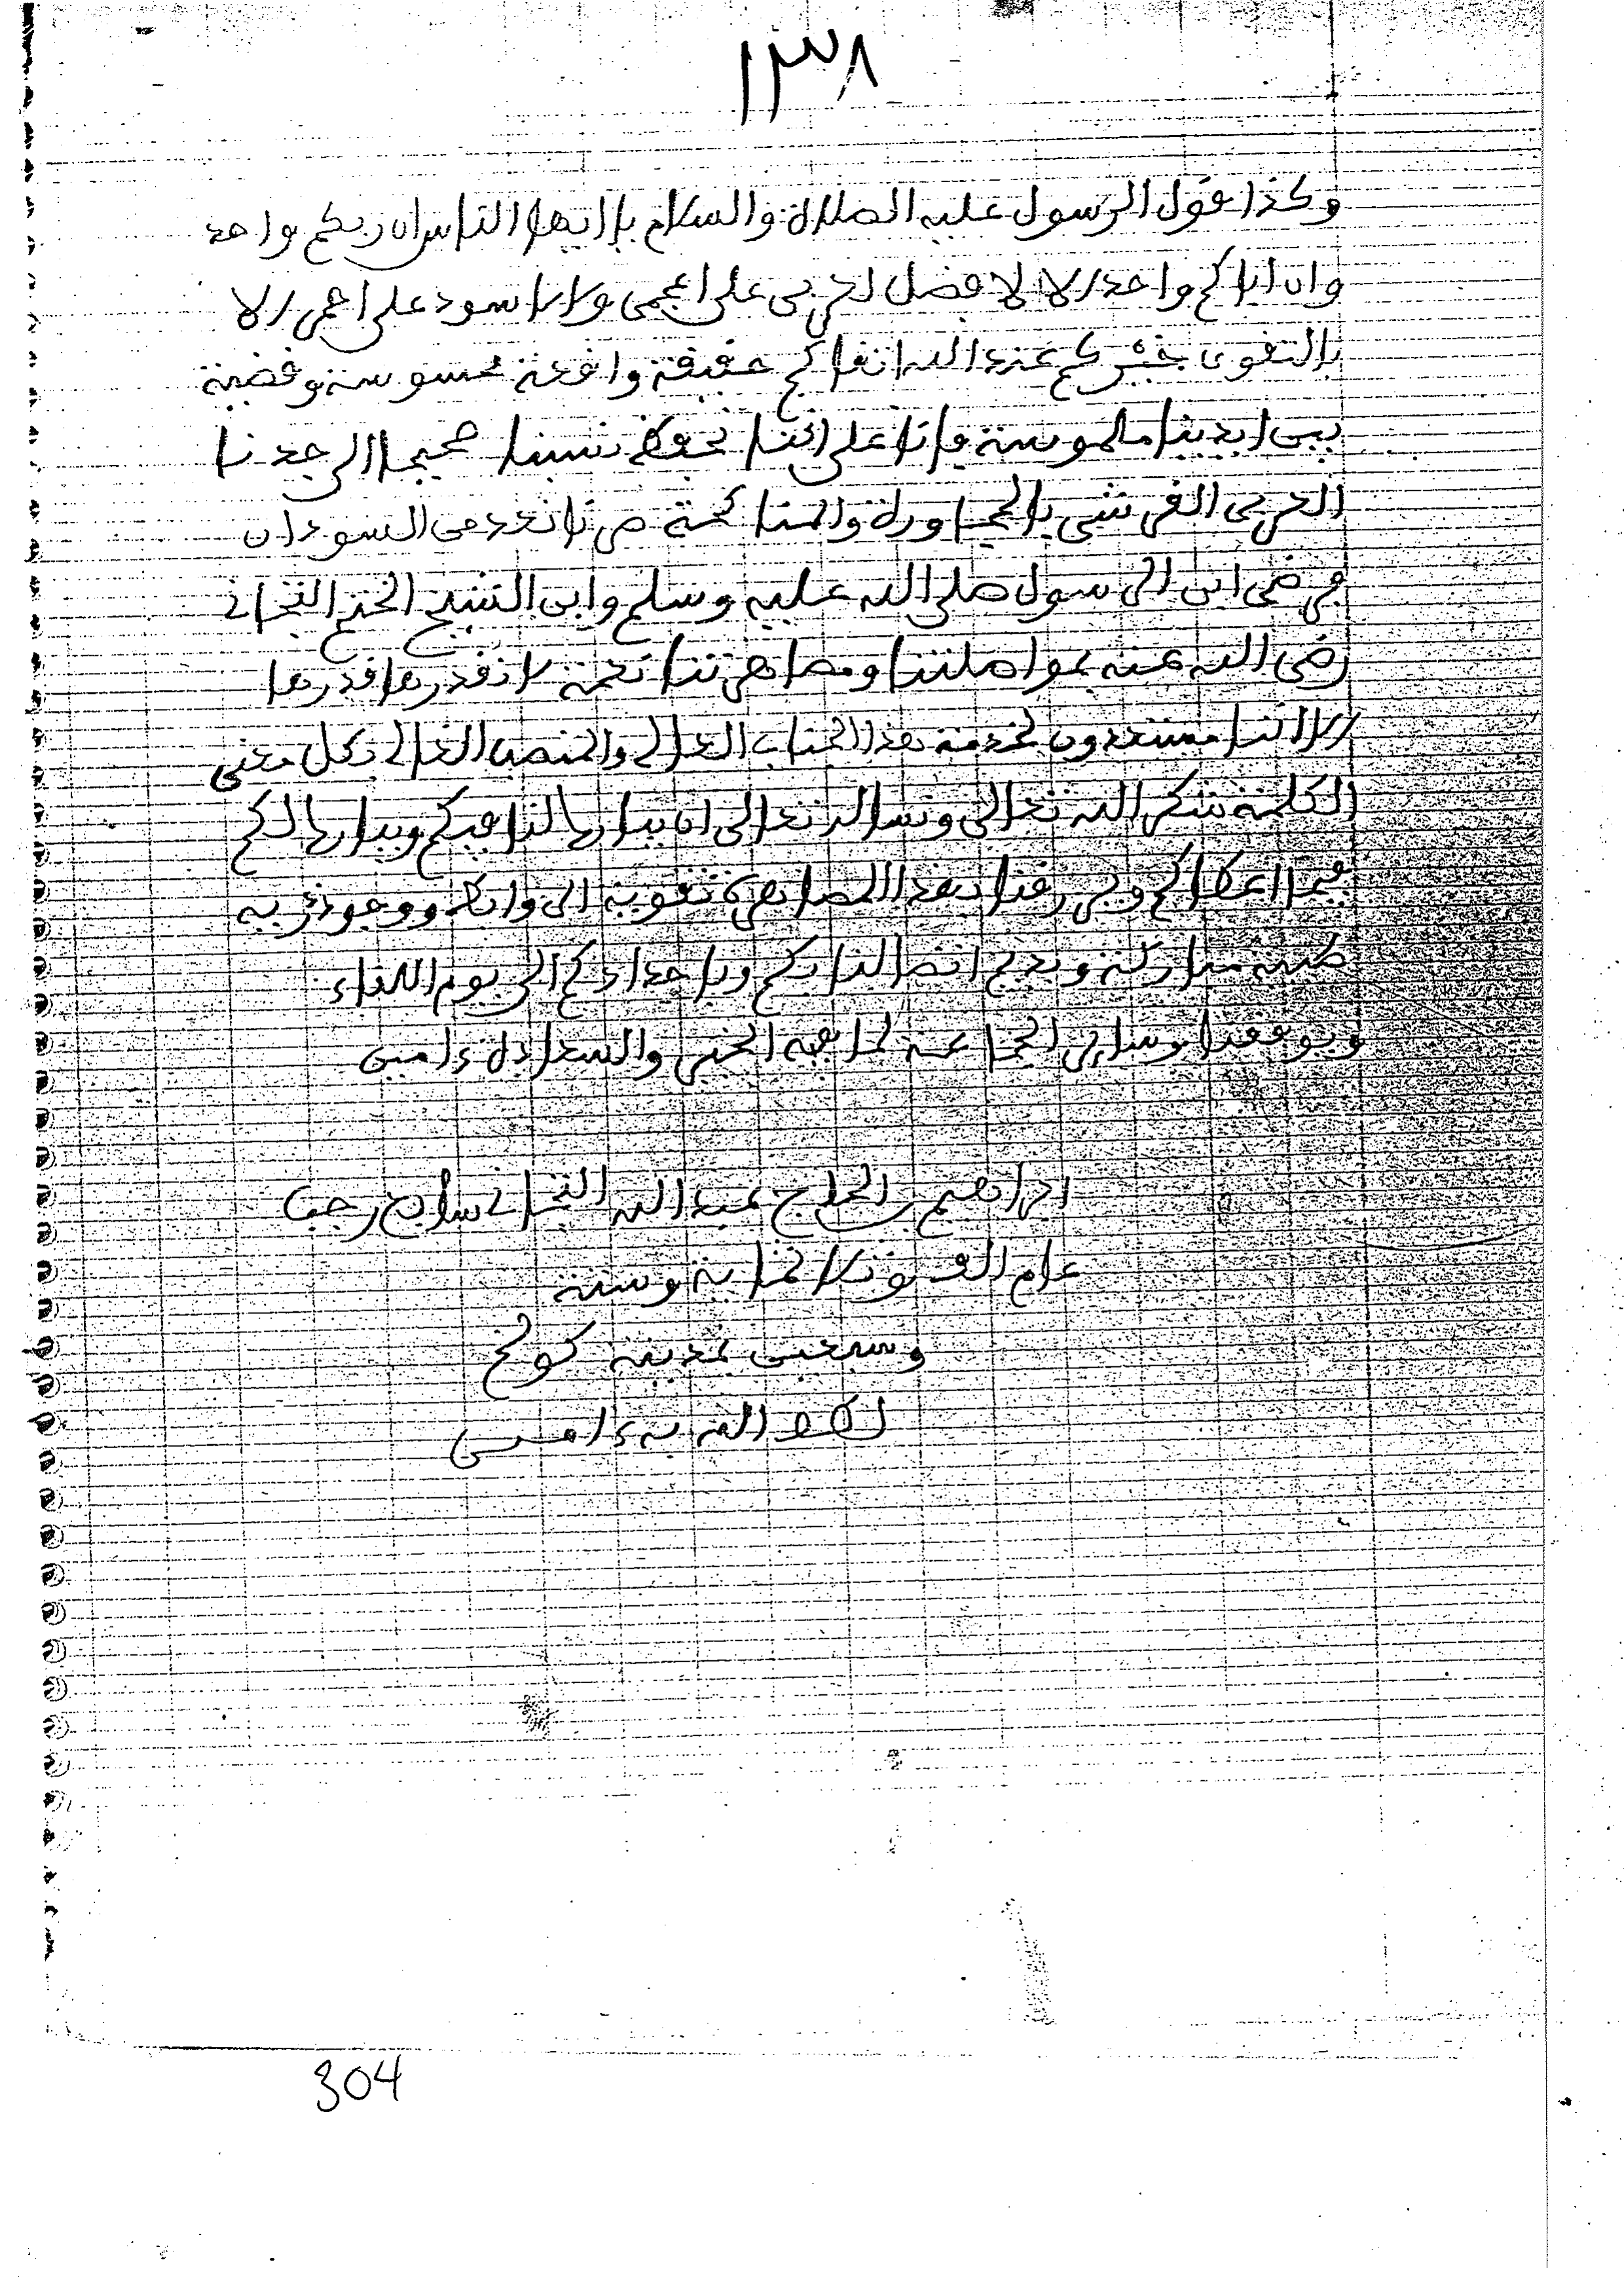 ١٣٨
وكذا قول الرسول عليه الصلاة والسلام يا ايها الناس ان ربكم واحد
وان اباكم واحد الا لا فضل لعربى على اعجمى ولا لاسود على احمر الا
بالتقوى خيركم عند الله اتقاكم حقيقة واقعة محسوسة وقضية
بين ايدينا ملموسة فانا على اننا نحفظ نسبنا صحيحا الى جدنا
العربى القرشى بالمجاورة والمناكحة صرنا نعد من السودان
فرضى ابن الرسول صلى الله عليه وسلم وابن الشيخ الختم التجانى
رضى الله عنه بمواصلتنا ومصاهرتنا نعمة لا نقدرها قدرها
الا اننا مستعدون لخدمة هذا الجناب العالى والمنصب الغالى بكل معنى
الكلمة شكر الله تعالى ونسال الله تعالى ان يبارك لنا فيكم ويبارك لكم
فيما اعطاكم ويرزقنا بهذا المصاهرة تقوية الروابط ووجود ذرية
طيبة مباركة ويديم اتصالنا بكم وباجدادكم الى يوم اللقاء
ويوفقنا وسائر الجماعة لما فيه الخير والسعادة ءامين
ابراهيم بن الحاج عبد الله التجانى سابع رجب
عام الف وثلاثماية وستة
وسبعين بمدينة كولخ
الله به ءامين
304